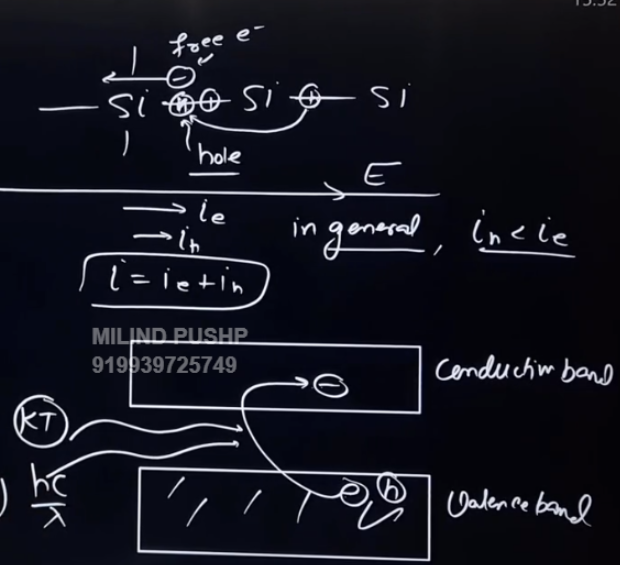 15:52
free e⁻
Si Si Si
hole
E
iₑ
iₕ
in general, iₕ < iₑ
i = iₑ + iₕ
MILIND PUSHP
919939725749
Conduction band
KT
hc
λ
e h
Valence band